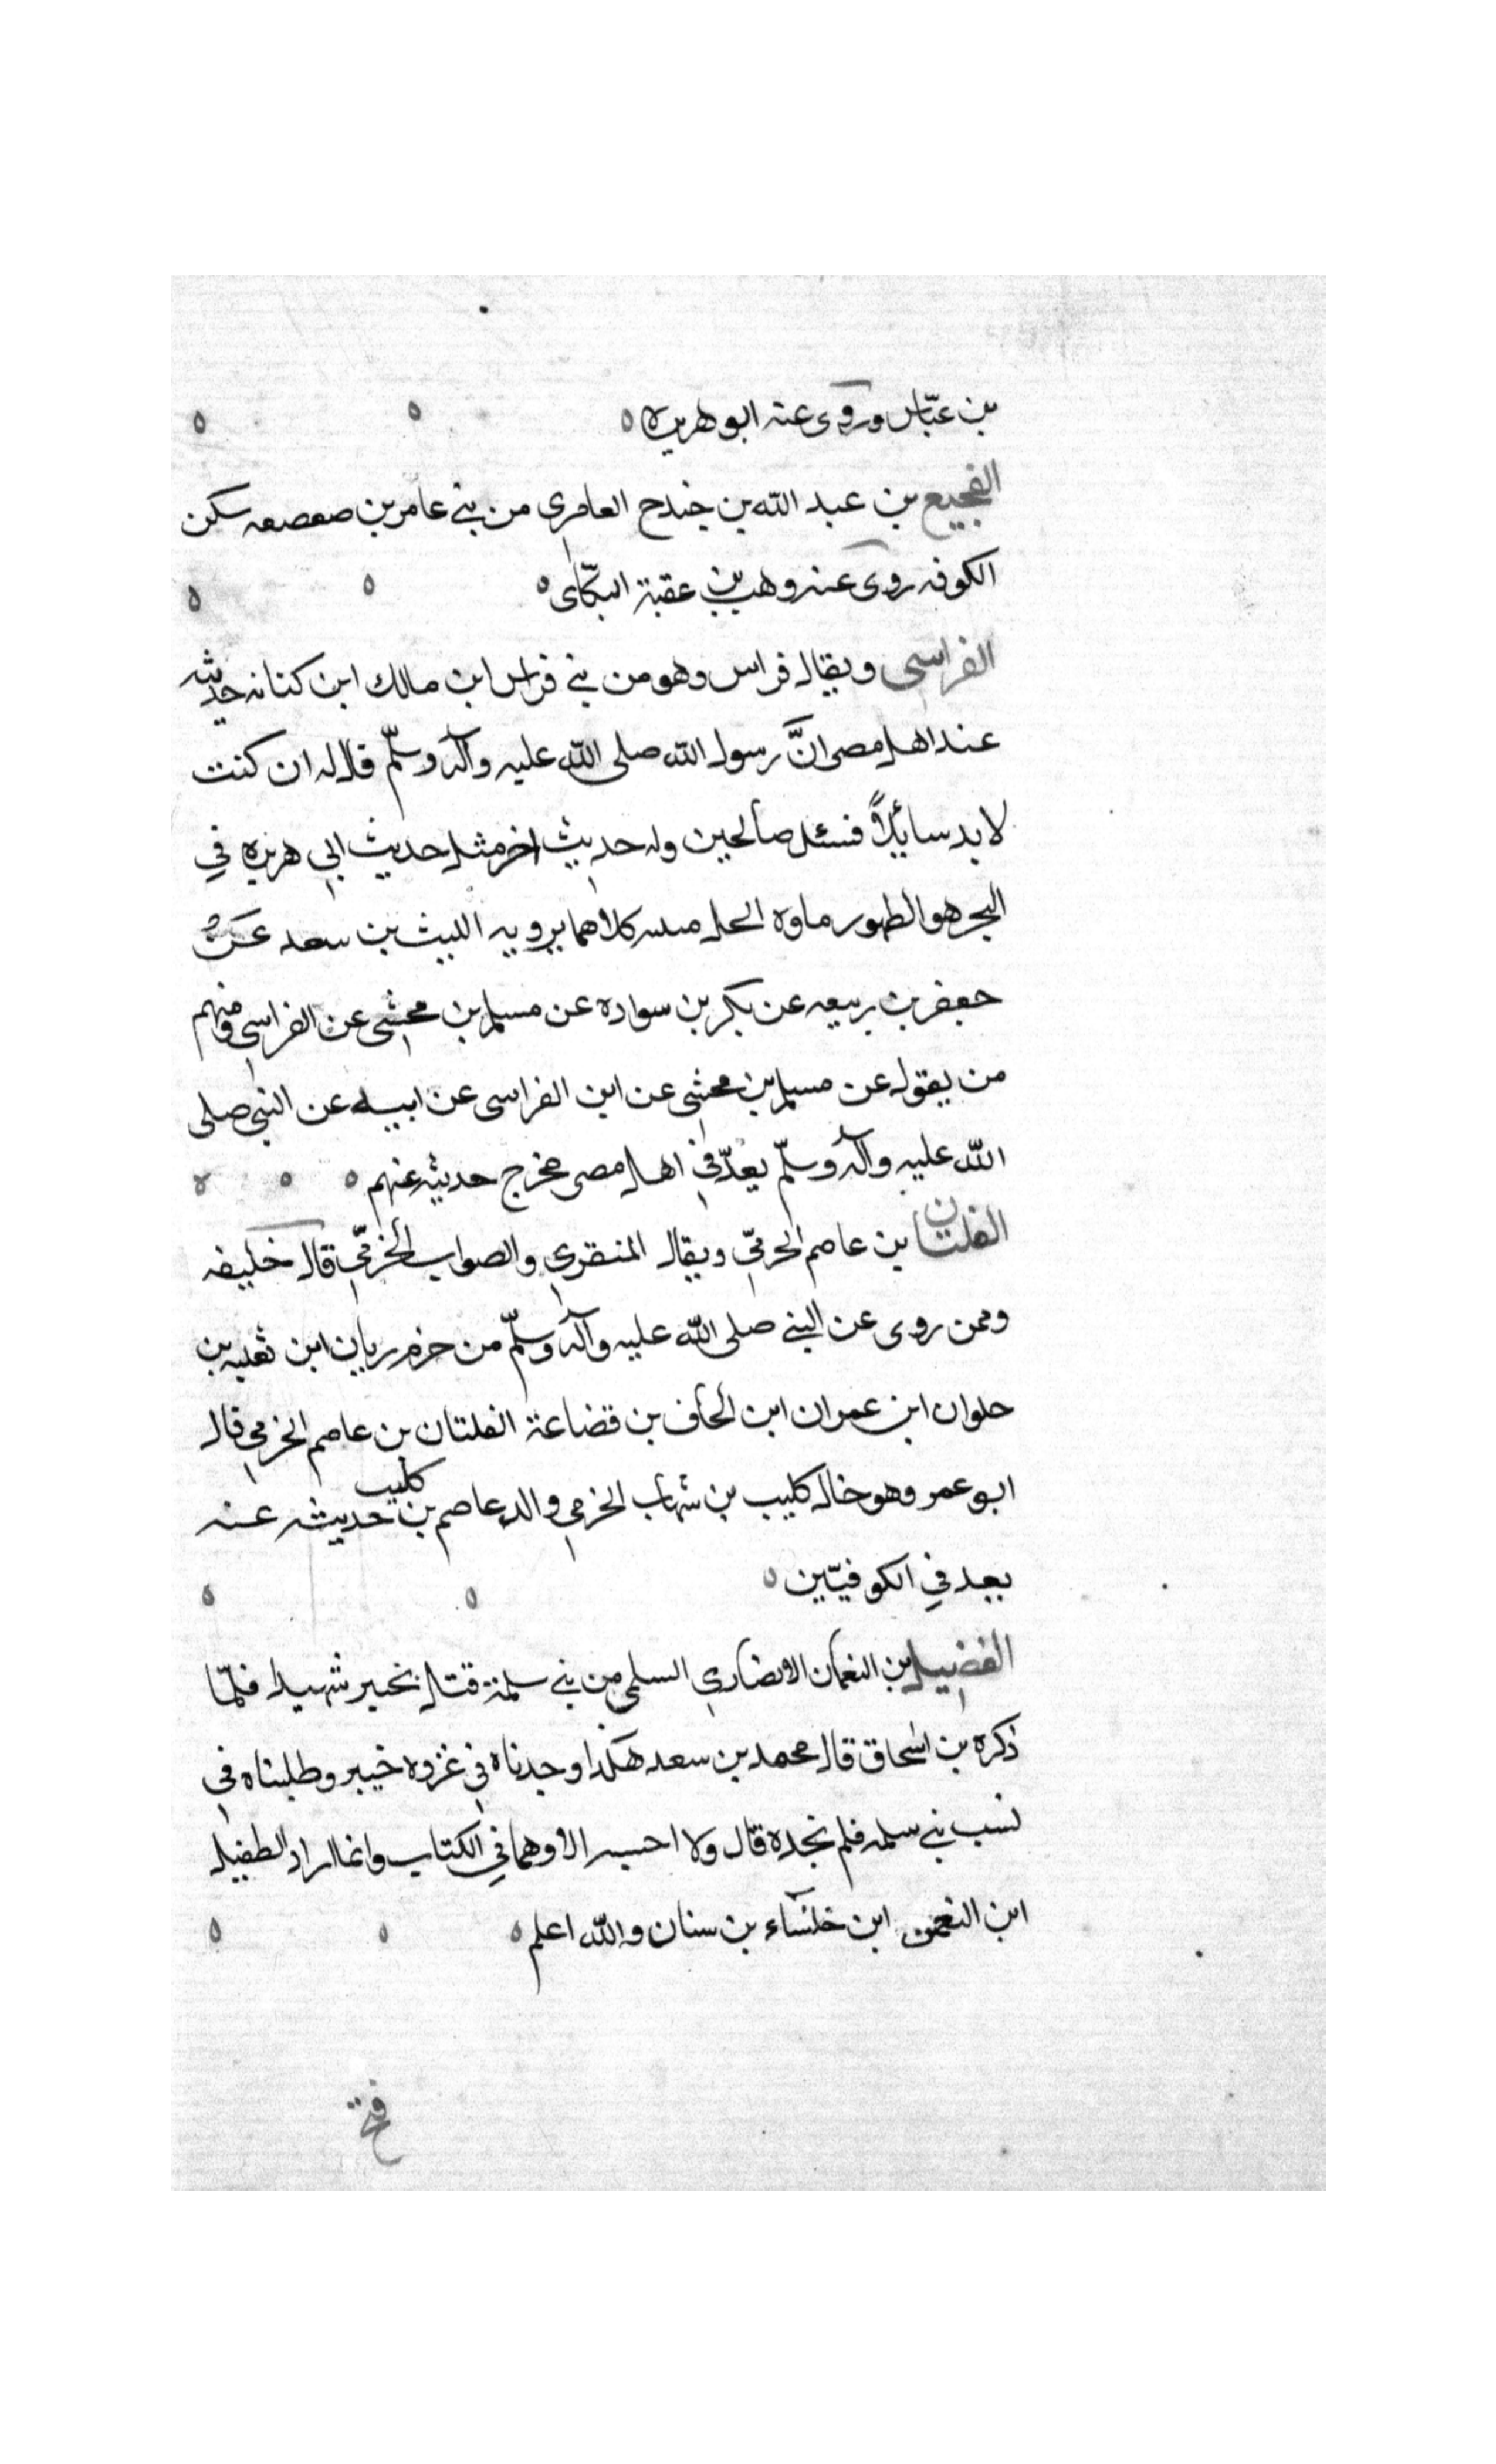 بن عبّاس وروى عنه ابو هريره ه ه ه
الفجيع بن عبد الله بن جندح العامري من بني عامر بن صعصعه سكن
الكوفه روى عنه وهب بن عقبة البكّاى ه ه ه
الفراسي ويقال فراس وهو من بني فراس ابن مالك ابن كنانه حديثه
عند اهل مصر انَّ رسول الله صلى الله عليه وآله وسلّم قال له ان كنت
لا بد سائلاً فسئل صالحين وله حديث اخر مثل حديث ابي هريره في
البحر هو الطهور ماوه الحل ميته كلاهما يرويه الليث بن سعد عن
جعفر بن ربيعه عن بكر بن سواده عن مسلم بن محشي عن الفراسي ومنهم
من يقول عن مسلم بن محشي عن ابن الفراسي عن ابيه عن النبي صلى
الله عليه وآله وسلّم يعدّ في اهل مصر مخرج حديثه عنهم ه ه ه
الفلتان بن عاصم الجرميّ ويقال المنقري والصواب الخرميّ قال خليفه
وممن روى عن النبي صلى الله عليه وآله وسلّم من خرم ربان ابن ثعلبه بن
حلوان ابن عمران ابن الحاف بن قضاعة الفلتان بن عاصم الخرمي قال
ابو عمر وهو خال كليب بن شهاب الخرمي والد عاصم بن كليب حديثه عنه
بعد في الكوفيّين ه ه ه
الفضيل بن النعمان الانصاري السلمي من بني سلمة قتل بخيبر شهيدا فلمّا
ذكره بن اسحاق قال محمد بن سعد هكذا وجدناه في غزوه خيبر وطلبناه في
نسب بني سلمه فلم نجده قال ولا احسبه الا وهما في الكتاب وانما اراد الطفيل
ابن النعمن ابن خلنساء بن سنان والله اعلم ه ه ه